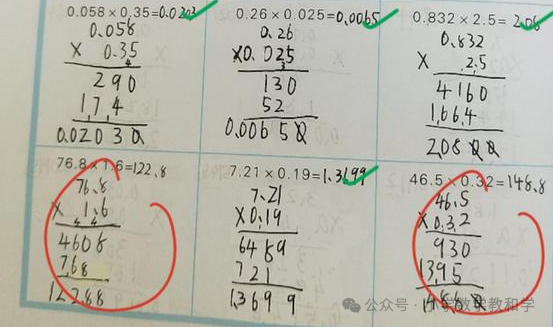 0.058×0.35=0.0203
0.058
× 0.35
290
174
0.02030
0.26×0.025=0.0065
0.26
×0.025
130
52
0.00650
0.832×2.5=2.08
0.832
× 2.5
4160
1664
2.0800
76.8×1.6=122.8
76.8
× 1.6
4608
768
122.88
7.21×0.19=1.3699
7.21
×0.19
6489
721
1.3699
46.5×0.32=148.8
46.5
×0.32
930
1395
公众号·小学数学教和学